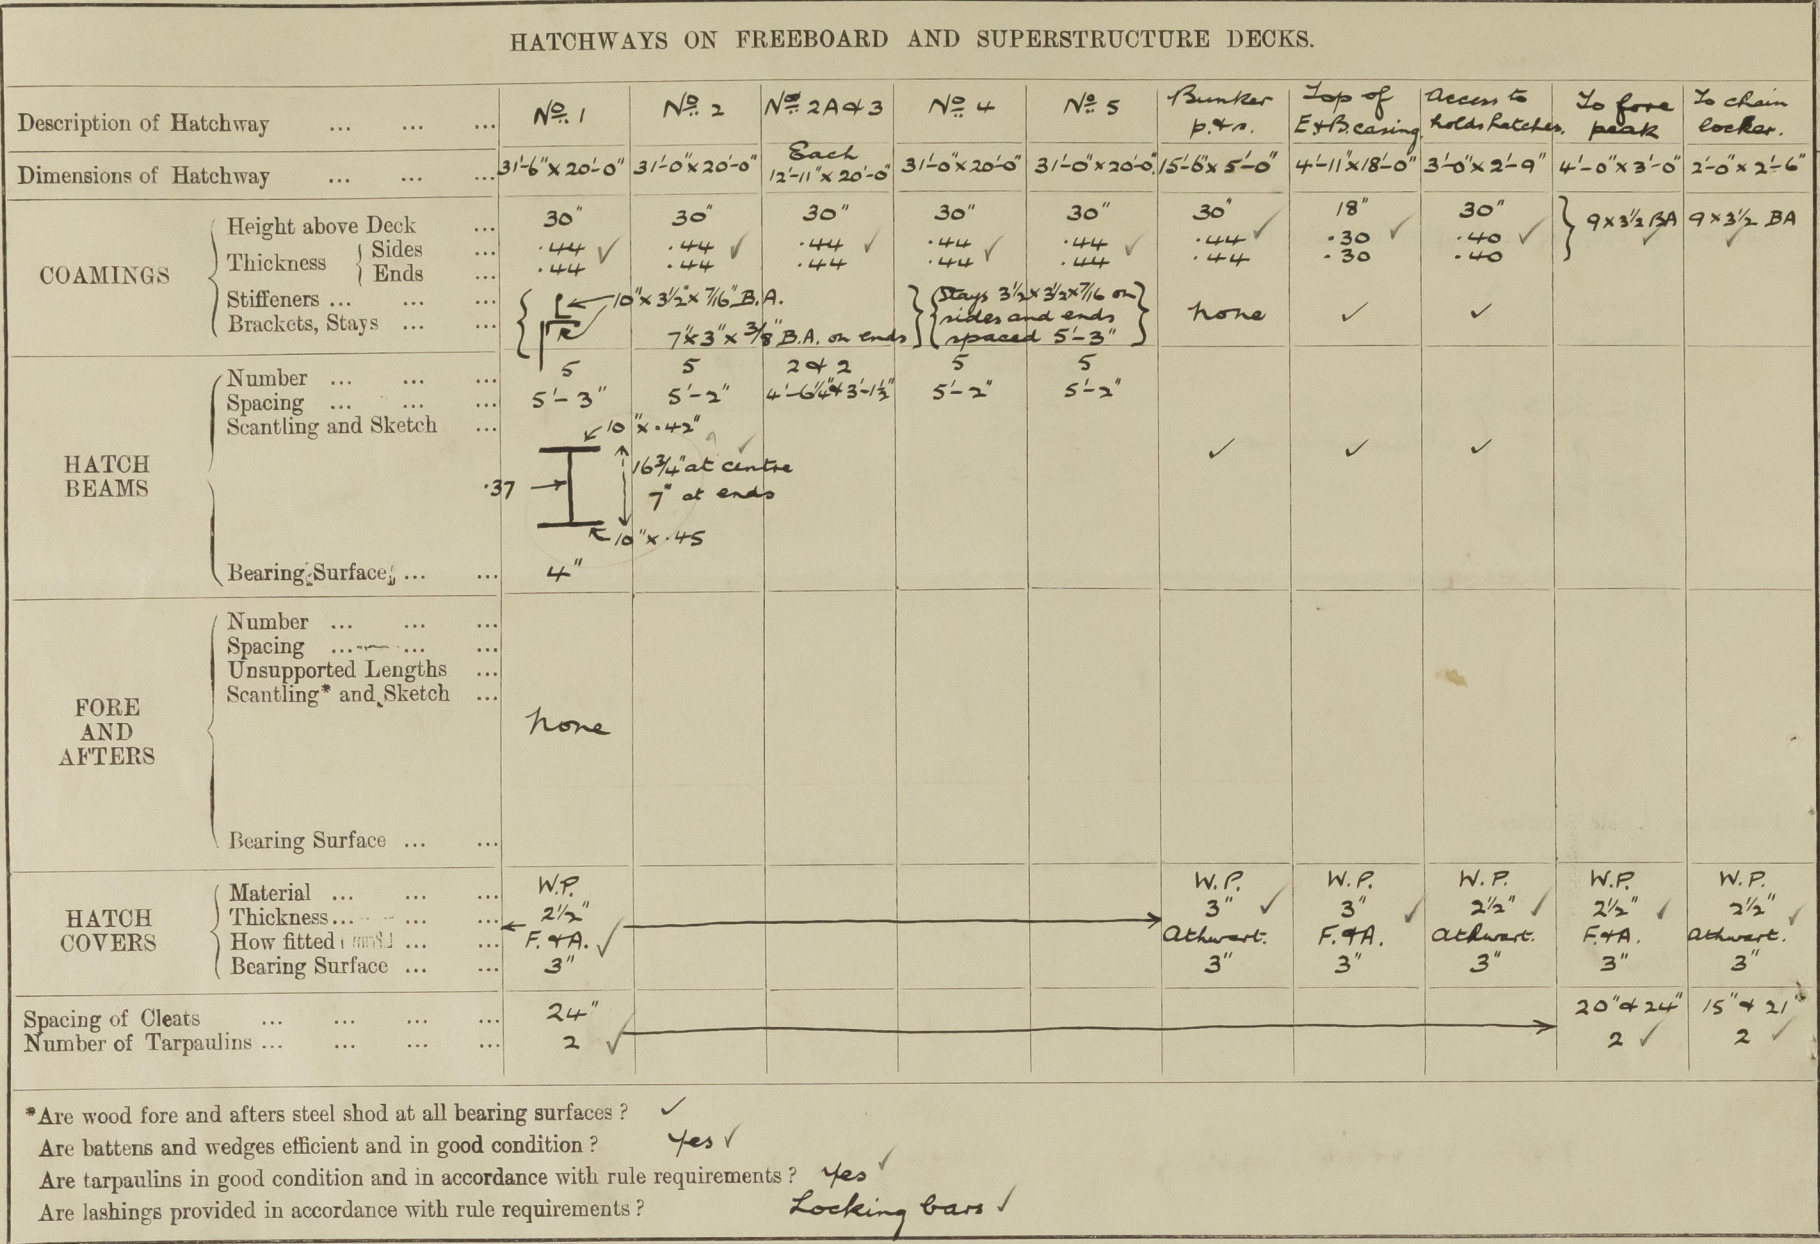 HATCHWAYS ON FREEBOARD AND SUPERSTRUCTURE DECKS.
Description of Hatchway ... ... ... No. 1 No. 2 No. 2A & 3 No. 4 No. 5 Bunker p. & s. Top of E & B. casing Access to holds hatches. To fore peak To chain locker.
Dimensions of Hatchway ... ... ... 31'-6" x 20'-0" 31'-0" x 20'-0" Each 12'-11" x 20'-0" 31'-0" x 20'-0" 31'-0" x 20'-0" 15'-6" x 5'-0" 4'-11" x 18'-0" 3'-0" x 2'-9" 4'-0" x 3'-0" 2'-0" x 2'-6"
COAMINGS
Height above Deck ... 30" 30" 30" 30" 30" 30" ✓ 18" 30" 9 x 3½ BA ✓ 9 x 3½ BA ✓
Thickness
Sides ... .44 ✓ .44 ✓ .44 ✓ .44 ✓ .44 ✓ .44 .30 ✓ .40 ✓
Ends ... .44 .44 .44 .44 .44 .44 .30 .40
Stiffeners ... ... ... 10" x 3½" x 7/16" B.A. Stays 3½ x 3½ x 7/16 on
Brackets, Stays ... ... sides and ends none ✓ ✓
7" x 3" x 3/8" B.A. on ends spaced 5'-3"
HATCH BEAMS
Number ... ... ... 5 5 2 & 2 5 5
Spacing ... ... ... 5'-3" 5'-2" 4'-6¼" & 3'-1½" 5'-2" 5'-2"
Scantling and Sketch ... 10" x .42" ✓ ✓ ✓ ✓
16¾" at centre
.37 7" at ends
10" x .45
Bearing Surface ... ... 4"
FORE AND AFTERS
Number ... ... ...
Spacing ... ... ...
Unsupported Lengths ...
Scantling* and Sketch ...
none
Bearing Surface ... ...
HATCH COVERS
Material ... ... ... W.P. W.P. W.P. W.P. W.P. W.P.
Thickness ... ... ... 2½" 3" ✓ 3" ✓ 2½" ✓ 2½" ✓ 2½" ✓
How fitted ... ... F. & A. ✓ Athwart. F. & A. Athwart. F. & A. Athwart.
Bearing Surface ... ... 3" 3" 3" 3" 3" 3"
Spacing of Cleats ... ... ... ... 24" 20" & 24" 15" & 21"
Number of Tarpaulins ... ... ... ... 2 ✓ 2 ✓ 2 ✓
*Are wood fore and afters steel shod at all bearing surfaces ? ✓
Are battens and wedges efficient and in good condition ? Yes ✓
Are tarpaulins in good condition and in accordance with rule requirements ? Yes ✓
Are lashings provided in accordance with rule requirements ? Locking bars ✓